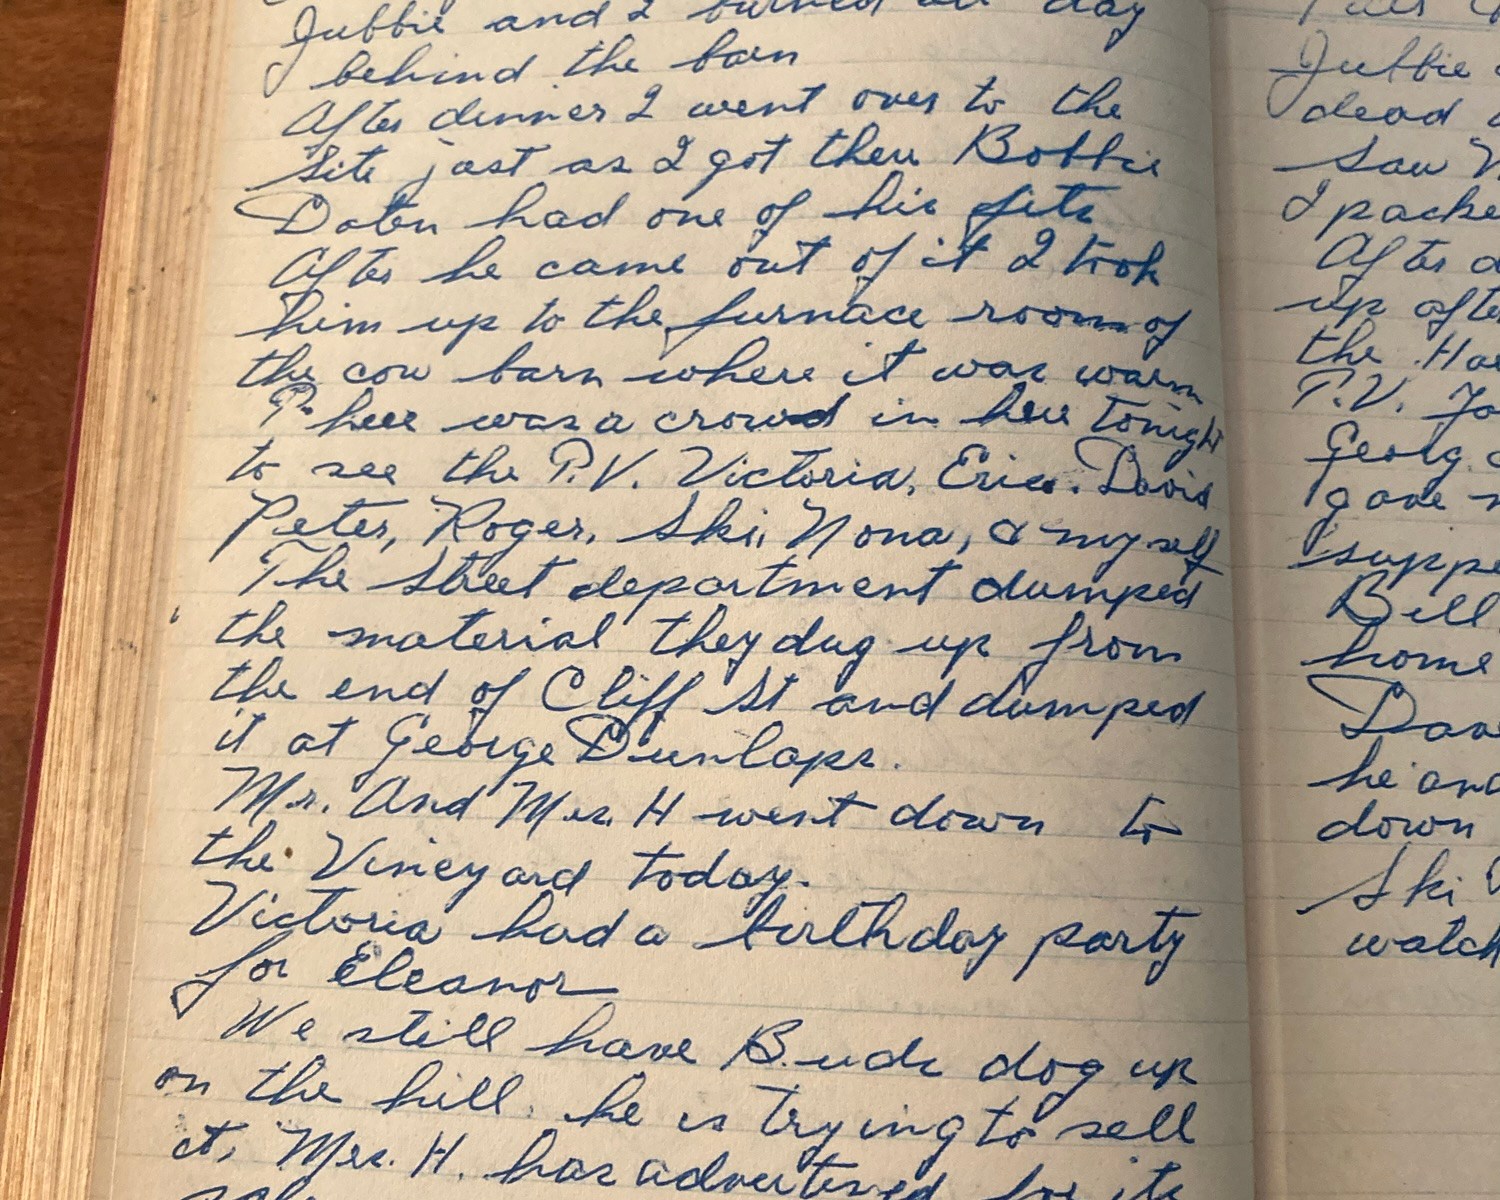 Jubbie and I burned all day
behind the barn
After dinner I went over to the
Site just as I got there Bobbie
Daten had one of his fits
After he came out of it I took
him up to the furnace room of
the cow barn where it was warm
There was a crowd in here tonight
to see the P.V. Victoria, Eric. David
Peter, Roger, Ski, Nona, & myself
The Street department dumped
the material they dug up from
the end of Cliff St and dumped
it at George Dunlaps.
Mr. And Mrs. H went down to
the Vineyard today.
Victoria had a birthday party
for Eleanor
We still have Buds dog up
on the hill. he is trying to sell
it, Mrs. H. has advertised for its
sale
Jubbie
dead
Saw
I packe
After
up afte
the
P.V.
Georg
gave
suppe
Bill
home
Dave
he and
down
Ski
watch